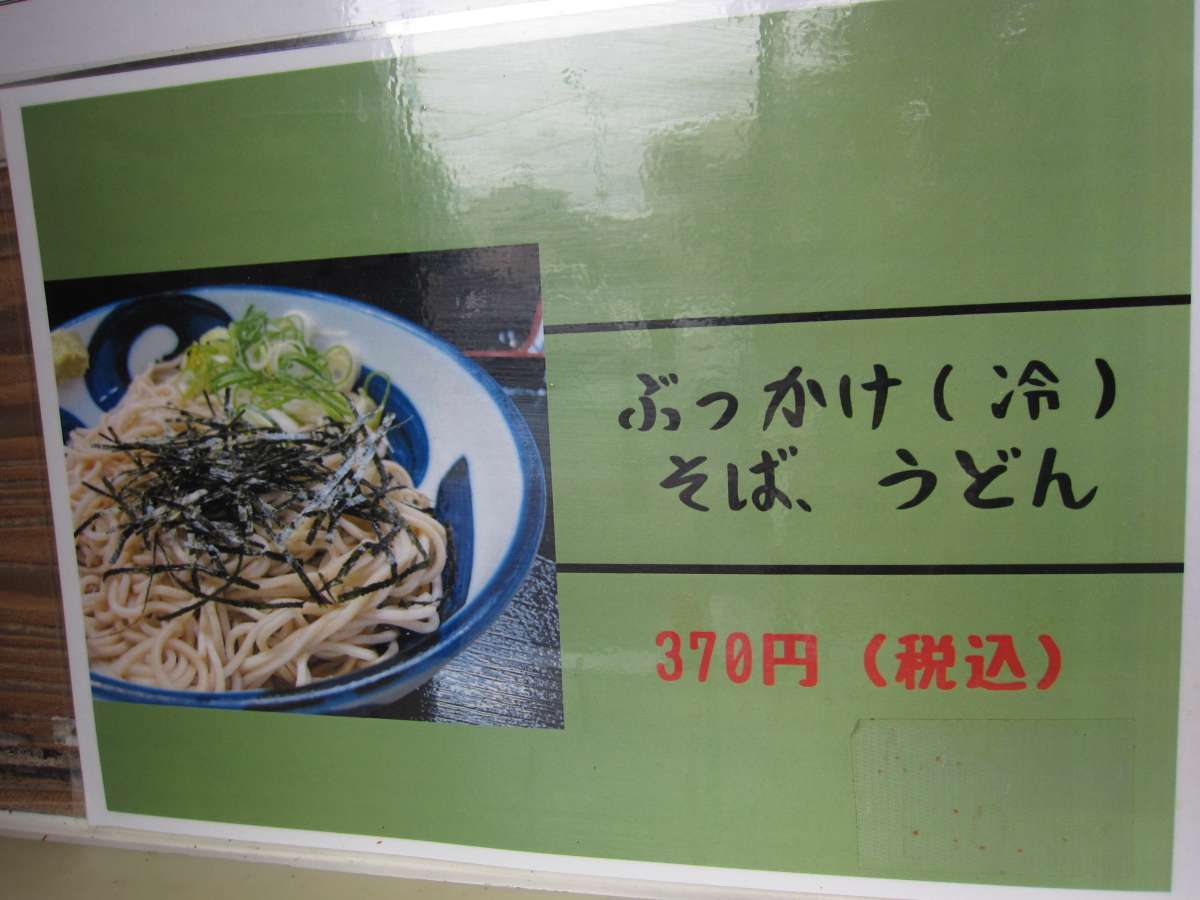 ぶっかけ(冷)
そば、うどん
370円(税込)